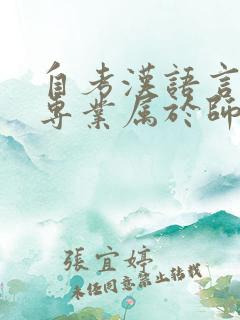 自考漢語言
專業属於師
張宜婷
未经同意禁止转载